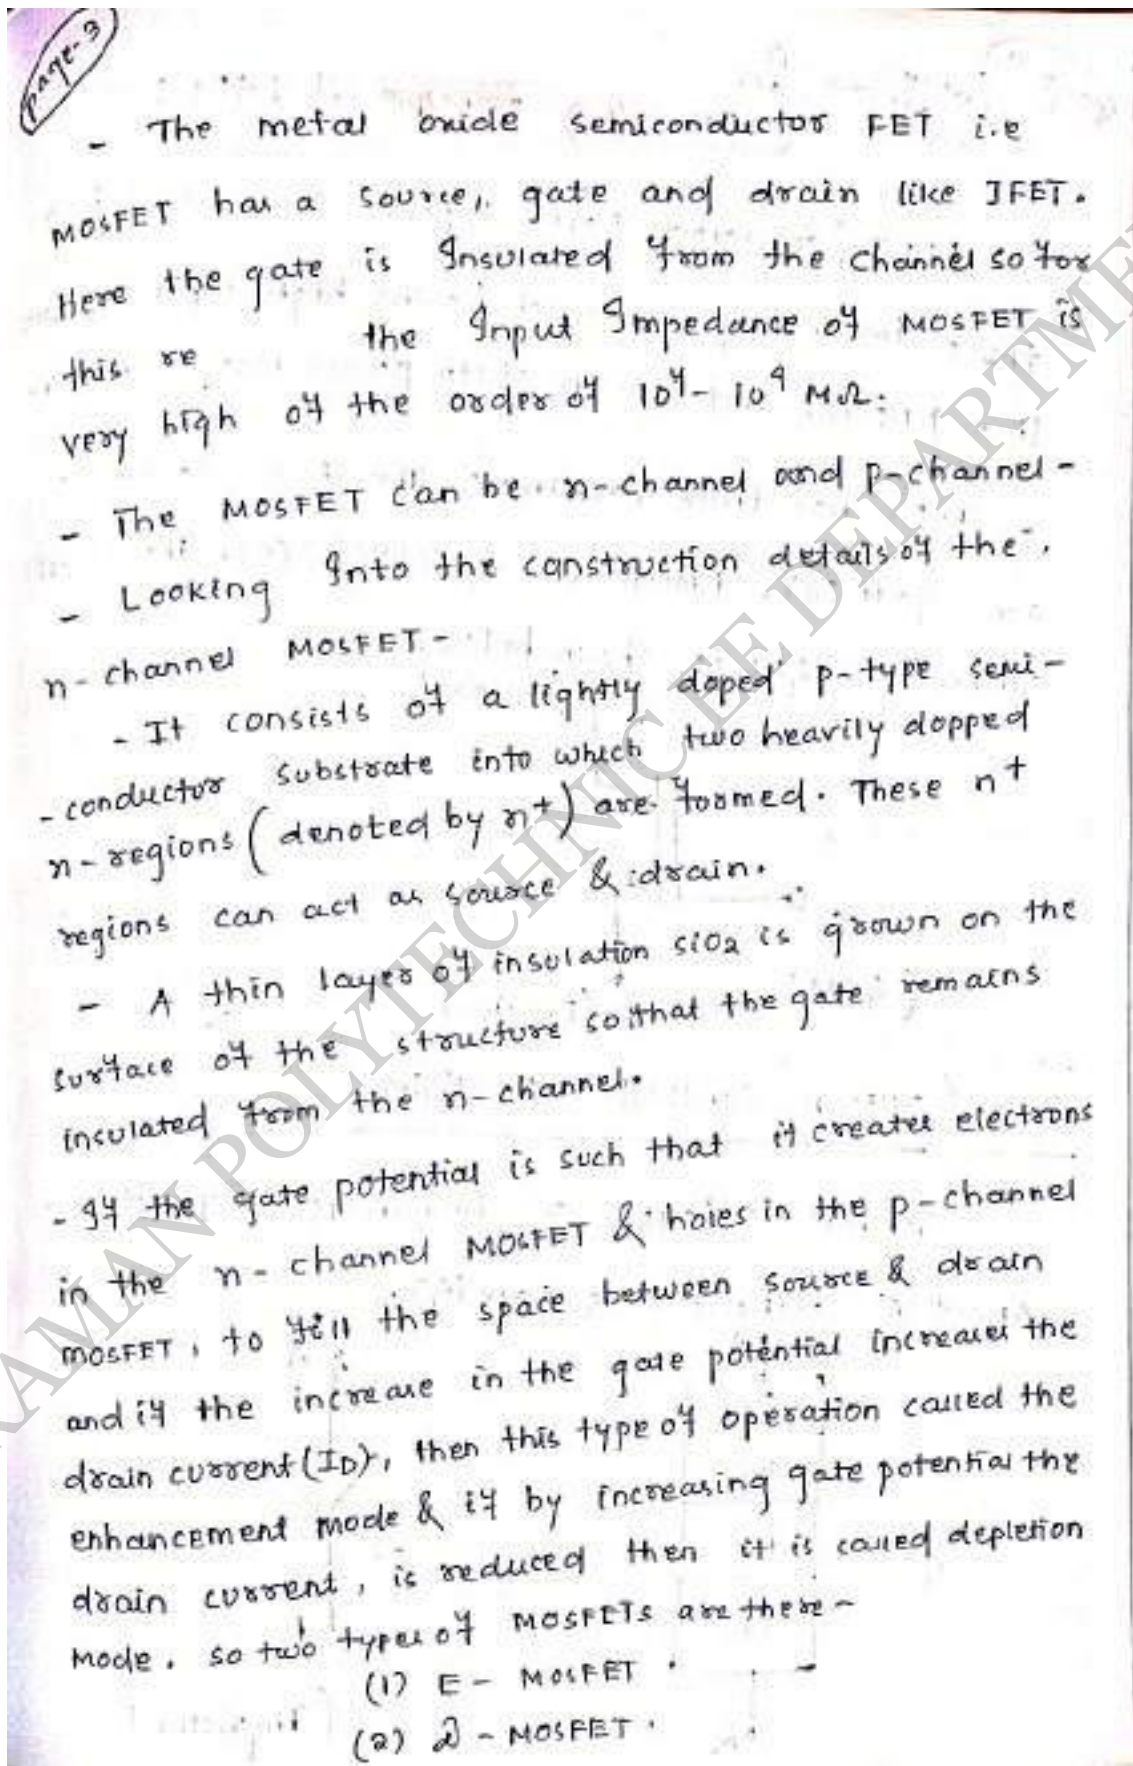 page-3
- The metal oxide semiconductor FET i.e
MOSFET has a source, gate and drain like JFET.
Here the gate is Insulated from the channel so for
this re the Input Impedance of MOSFET is
very high of the order of 10⁴ - 10⁹ MΩ.
- The MOSFET can be n-channel and p-channel-
- Looking Into the construction details of the
n-channel MOSFET-
- It consists of a lightly doped p-type semi-
-conductor substrate into which two heavily dopped
n-regions (denoted by n⁺) are formed. These n⁺
regions can act as source & drain.
- A thin layer of insulation SiO2 is grown on the
surface of the structure so that the gate remains
insulated from the n-channel.
- If the gate potential is such that it creates electrons
in the n-channel MOSFET & holes in the p-channel
MOSFET, to fill the space between source & drain
and if the increase in the gate potential increases the
drain current (ID), then this type of operation called the
enhancement mode & if by increasing gate potential the
drain current, is reduced then it is called depletion
mode. so two types of MOSFETs are there-
(1) E- MOSFET.
(2) D-MOSFET.
RAMAN POLYTECHNIC EE DEPARTME